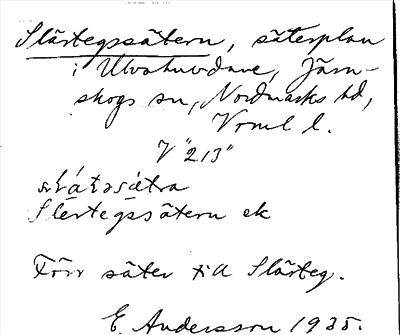 Slärtegssätern, säterplan
i Utvahuvdane, Järn-
skogs sn, Nordmarks hd,
Vrml l.
V "213"
Slärtegssätern ek
Förr säter till Slärteg.
E. Andersson 1935.